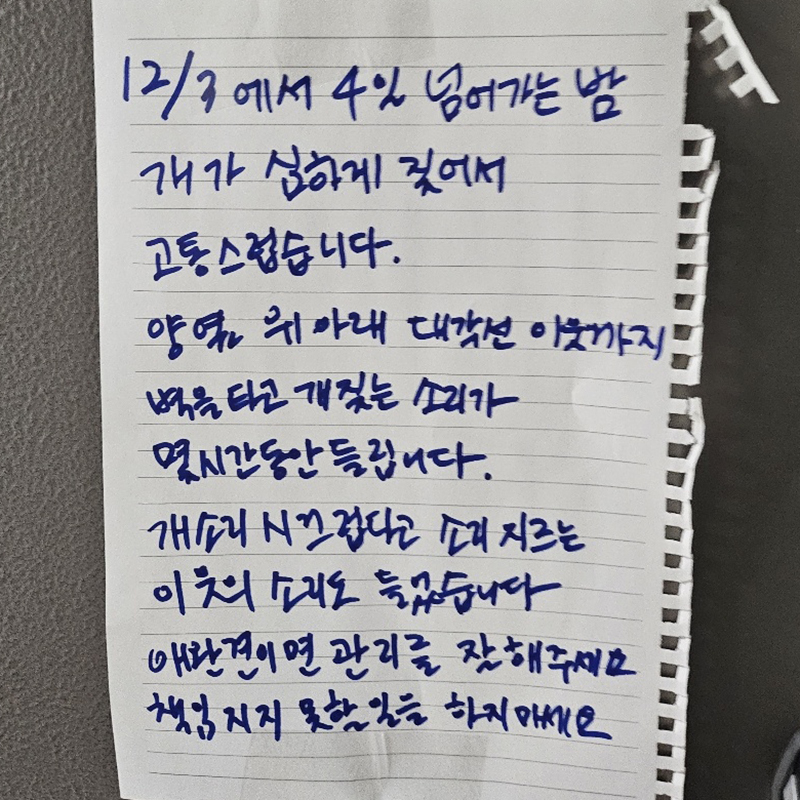 12/3에서 4일 넘어가는 밤
개가 심하게 짖어서
고통스럽습니다.
양옆 위 아래 대각선 이웃까지
벽을 타고 개짖는 소리가
몇시간동안 들립니다.
개소리 시끄럽다고 소리 지르는
이웃의 소리도 들었습니다
애완견이면 관리를 잘 해주세요
책임 지지 못할일을 하지마세요